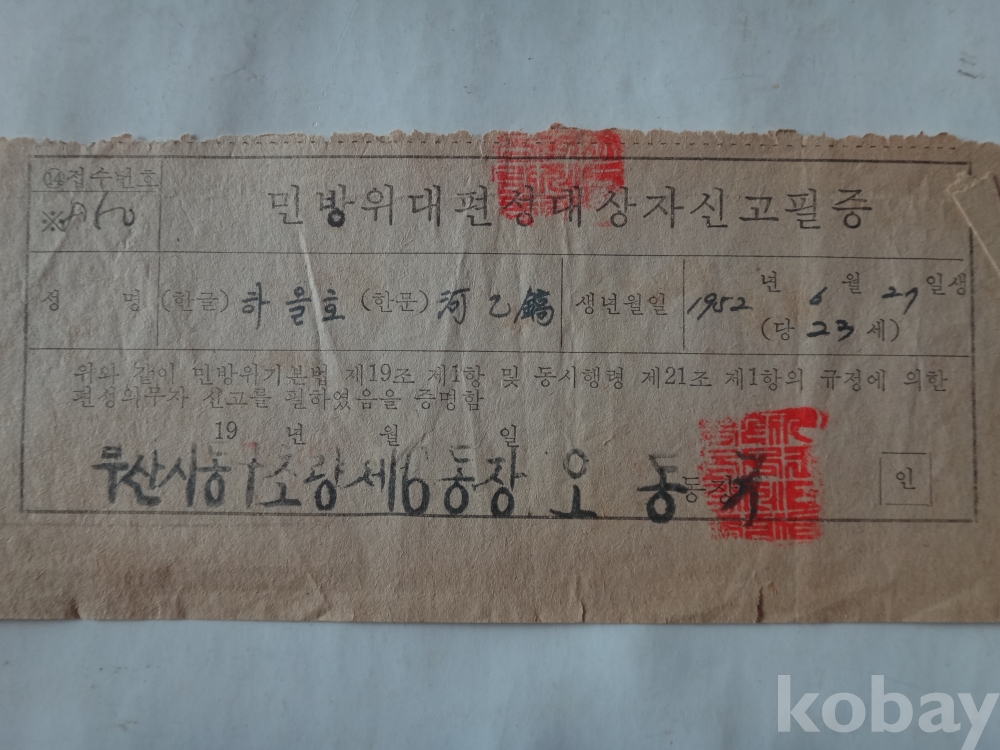 ⑭접수번호
※
민방위대편성대상자신고필증
성 명 (한글) 하을호 (한문) 河乙鎬 생년월일 1952년 6월 27일생
(당 23 세)
위와 같이 민방위기본법 제19조 제1항 및 동시행령 제21조 제1항의 규정에 의한
편성의무자 신고를 필하였음을 증명함
19 년 월 일
부산시동1초량제6통장 오 동 인
kobay